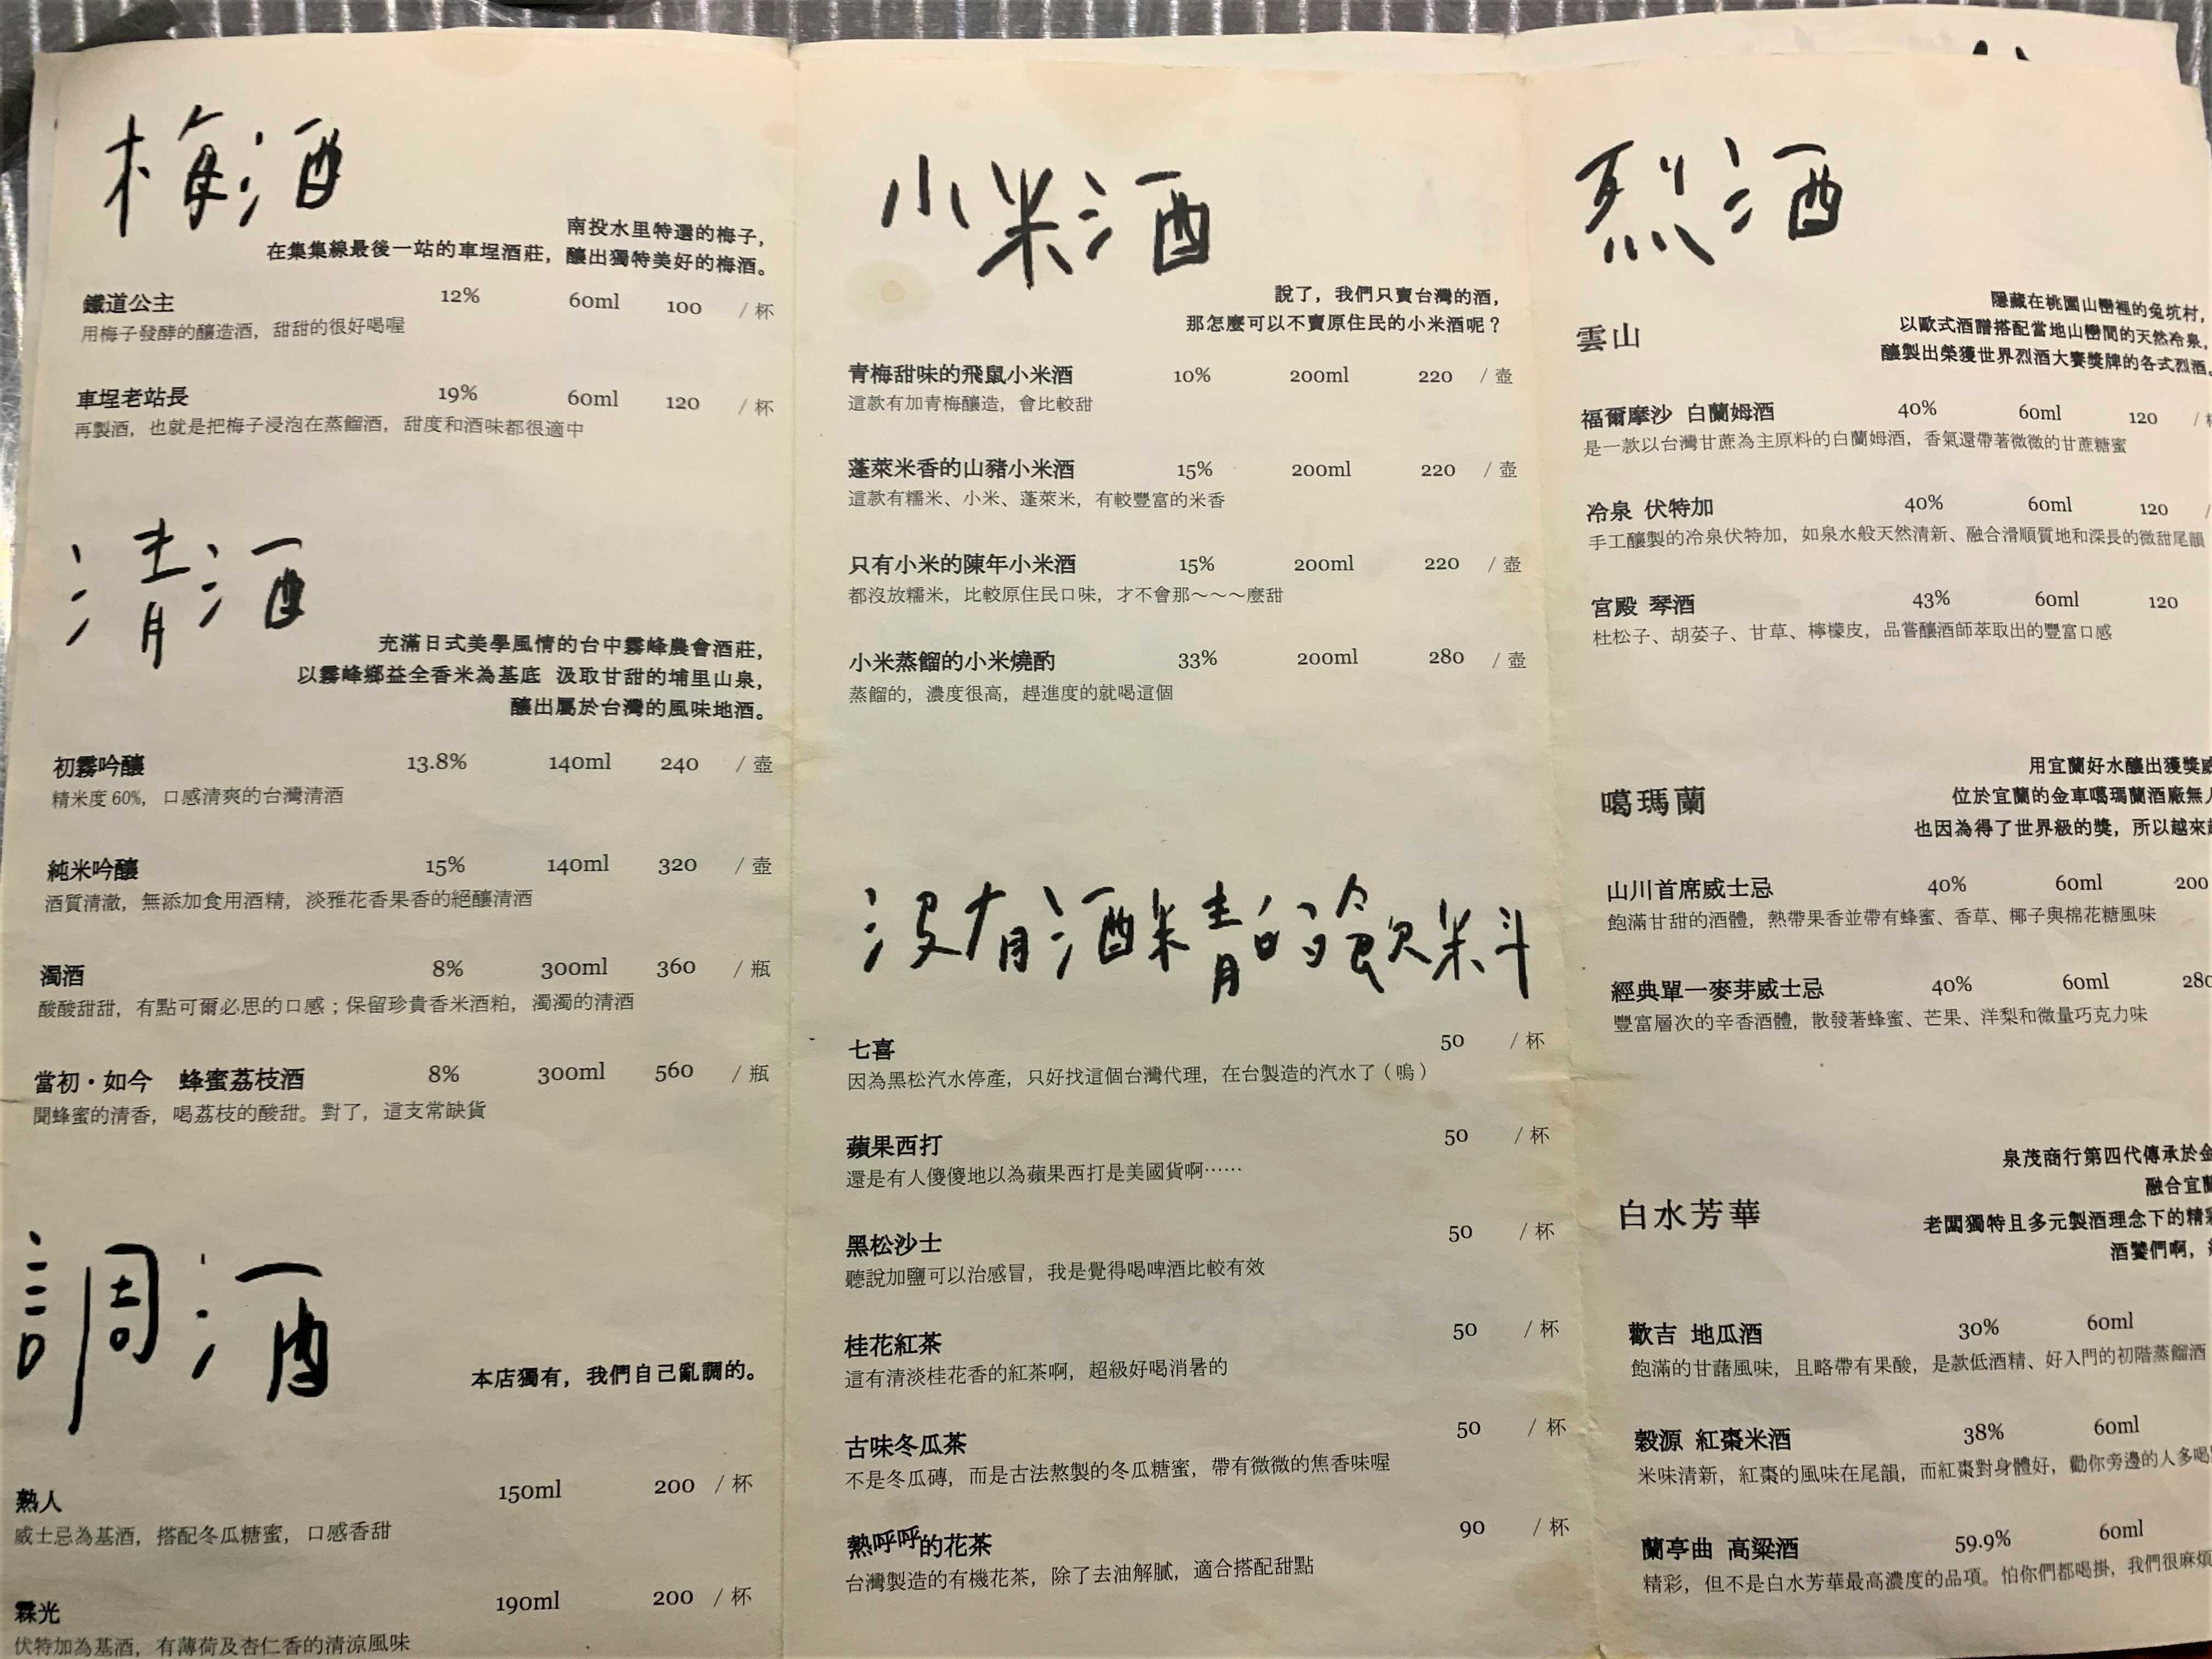 梅酒
南投水里特選的梅子，
在集集線最後一站的車埕酒莊，釀出獨特美好的梅酒。
鐵道公主 12% 60ml 100 / 杯
用梅子發酵的釀造酒，甜甜的很好喝喔
車埕老站長 19% 60ml 120 / 杯
再製酒，也就是把梅子浸泡在蒸餾酒，甜度和酒味都很適中
清酒
充滿日式美學風情的台中霧峰農會酒莊，
以霧峰鄉益全香米為基底 汲取甘甜的埔里山泉，
釀出屬於台灣的風味地酒。
初霧吟釀 13.8% 140ml 240 / 壺
精米度 60%，口感清爽的台灣清酒
純米吟釀 15% 140ml 320 / 壺
酒質清澈，無添加食用酒精，淡雅花香果香的絕釀清酒
濁酒 8% 300ml 360 / 瓶
酸酸甜甜，有點可爾必思的口感；保留珍貴香米酒粕，濁濁的清酒
當初・如今 蜂蜜荔枝酒 8% 300ml 560 / 瓶
聞蜂蜜的清香，喝荔枝的酸甜。對了，這支常缺貨
調酒
本店獨有，我們自己亂調的。
熟人 150ml 200 / 杯
威士忌為基酒，搭配冬瓜糖蜜，口感香甜
霖光 190ml 200 / 杯
伏特加為基酒，有薄荷及杏仁香的清涼風味
小米酒
說了，我們只賣台灣的酒，
那怎麼可以不賣原住民的小米酒呢？
青梅甜味的飛鼠小米酒 10% 200ml 220 / 壺
這款有加青梅釀造，會比較甜
蓬萊米香的山豬小米酒 15% 200ml 220 / 壺
這款有糯米、小米、蓬萊米，有較豐富的米香
只有小米的陳年小米酒 15% 200ml 220 / 壺
都沒放糯米，比較原住民口味，才不會那～～～麼甜
小米蒸餾的小米燒酌 33% 200ml 280 / 壺
蒸餾的，濃度很高，趕進度的就喝這個
沒有酒精的飲料
七喜 50 / 杯
因為黑松汽水停產，只好找這個台灣代理，在台製造的汽水了（嗚）
蘋果西打 50 / 杯
還是有人傻傻地以為蘋果西打是美國貨啊……
黑松沙士 50 / 杯
聽說加鹽可以治感冒，我是覺得喝啤酒比較有效
桂花紅茶 50 / 杯
這有清淡桂花香的紅茶啊，超級好喝消暑的
古味冬瓜茶 50 / 杯
不是冬瓜磚，而是古法熬製的冬瓜糖蜜，帶有微微的焦香味喔
熱呼呼的花茶 90 / 杯
台灣製造的有機花茶，除了去油解膩，適合搭配甜點
烈酒
雲山
隱藏在桃園山巒裡的兔坑村，
以歐式酒譜搭配當地山巒間的天然冷泉，
釀製出榮獲世界烈酒大賽獎牌的各式烈酒。
福爾摩沙 白蘭姆酒 40% 60ml 120 /
是一款以台灣甘蔗為主原料的白蘭姆酒，香氣還帶著微微的甘蔗糖蜜
冷泉 伏特加 40% 60ml 120 /
手工釀製的冷泉伏特加，如泉水般天然清新、融合滑順質地和深長的微甜尾韻
宮殿 琴酒 43% 60ml 120
杜松子、胡荽子、甘草、檸檬皮，品嘗釀酒師萃取出的豐富口感
噶瑪蘭
用宜蘭好水釀出獲獎
位於宜蘭的金車噶瑪蘭酒廠無
也因為得了世界級的獎，所以越來
山川首席威士忌 40% 60ml 200
飽滿甘甜的酒體，熱帶果香並帶有蜂蜜、香草、椰子與棉花糖風味
經典單一麥芽威士忌 40% 60ml 280
豐富層次的辛香酒體，散發著蜂蜜、芒果、洋梨和微量巧克力味
白水芳華
泉茂商行第四代傳承於金
融合宜蘭
老闆獨特且多元製酒理念下的精
酒饕們啊，
歡吉 地瓜酒 30% 60ml
飽滿的甘藷風味，且略帶有果酸，是款低酒精、好入門的初階蒸餾酒
穀源 紅棗米酒 38% 60ml
米味清新，紅棗的風味在尾韻，而紅棗對身體好，勸你旁邊的人多喝
蘭亭曲 高粱酒 59.9% 60ml
精彩，但不是白水芳華最高濃度的品項。怕你們都喝掛，我們很麻煩